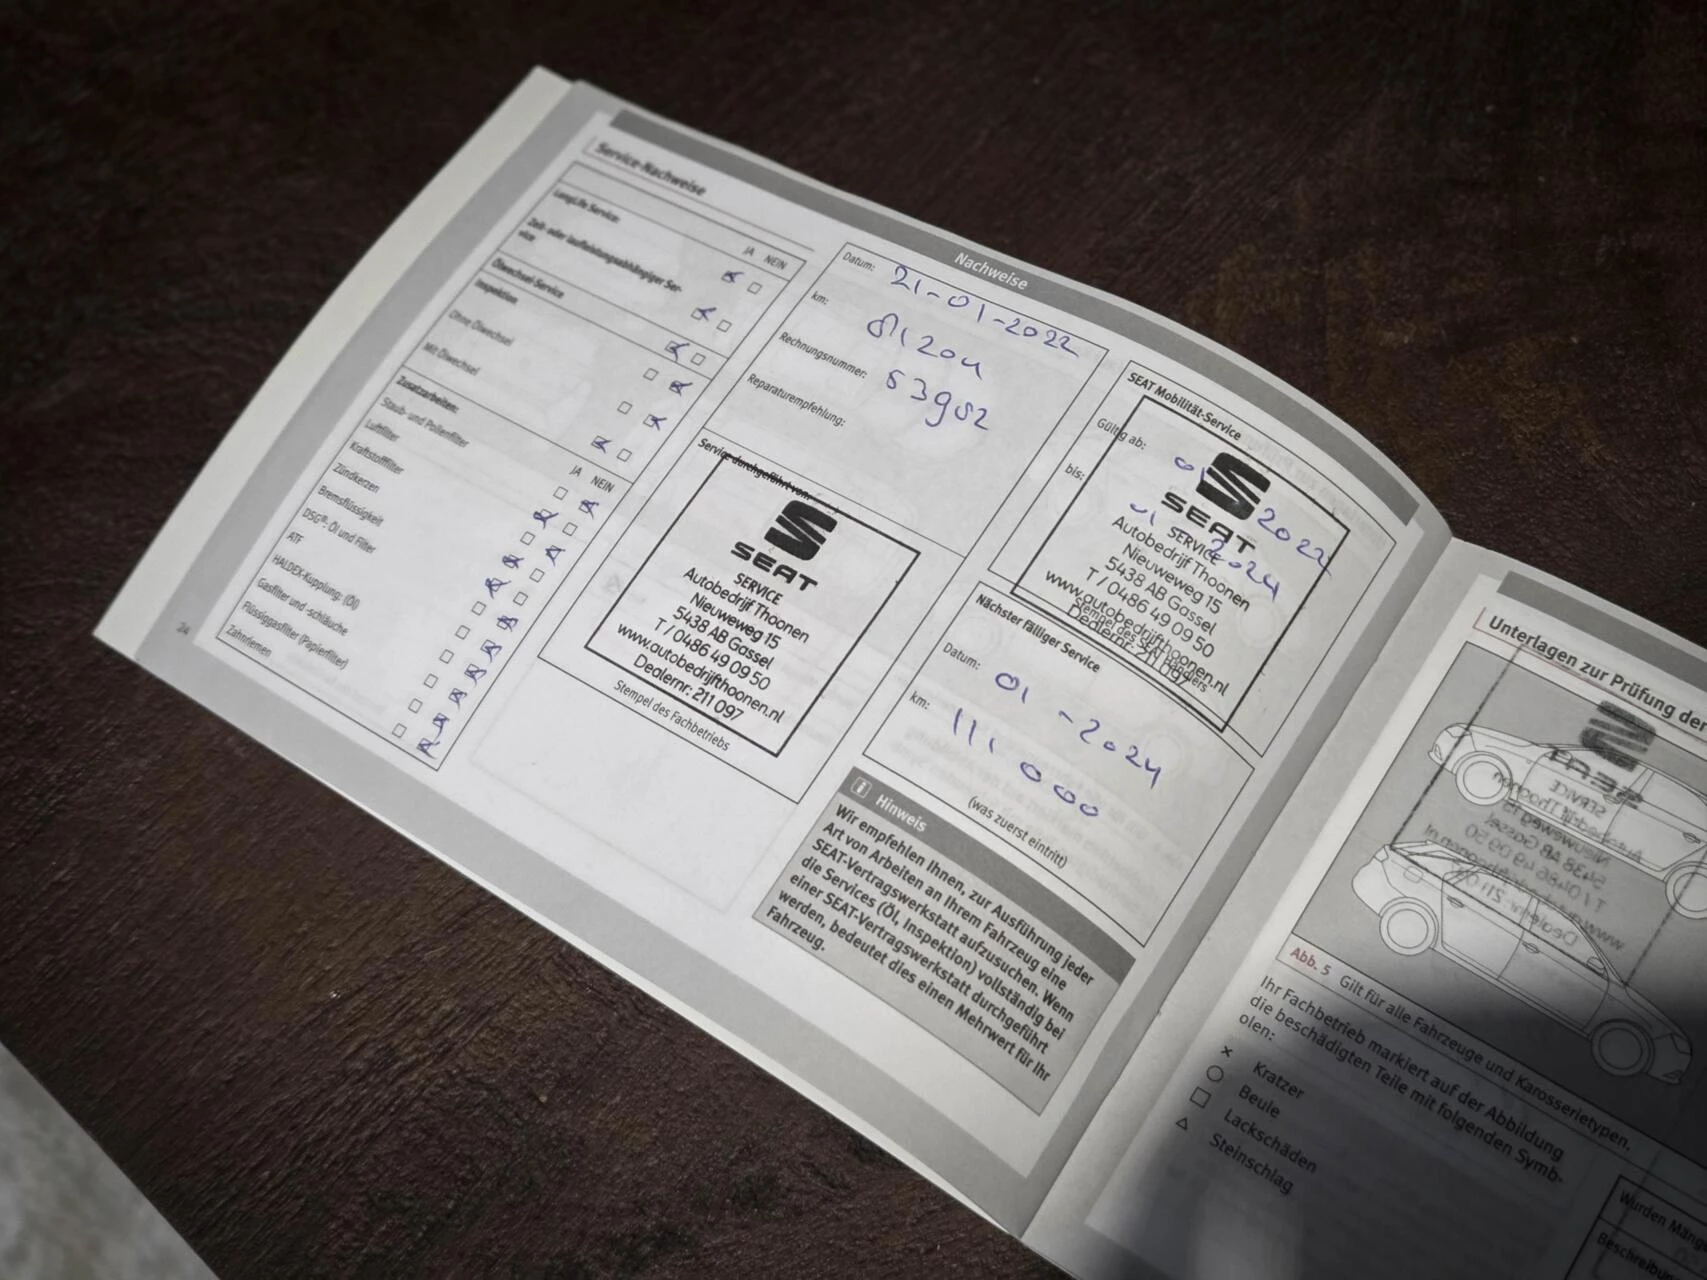 Service-Nachweise
LongLife Service:
JA NEIN
Zeit- oder laufleistungsabhängiger Ser-
vice
Ölwechsel-Service
Inspektion
Ohne Ölwechsel
Mit Ölwechsel
Zusatzarbeiten:
JA NEIN
Staub- und Pollenfilter
Luftfilter
Kraftstofffilter
Zündkerzen
Bremsflüssigkeit
DSG®: Öl und Filter
ATF
HALDEX-Kupplung: (Öl)
Gasfilter und -schläuche
Flüssiggasfilter (Papierfilter)
Zahnriemen
24
Nachweise
Datum: 21-01-2022
km:
Rechnungsnummer:
Reparaturempfehlung:
Service durchgeführt von:
SEAT
SERVICE
Autobedrijf Thoonen
Nieuweweg 15
5438 AB Gassel
T / 0486 49 09 50
www.autobedrijfthoonen.nl
Dealernr: 211 097
Stempel des Fachbetriebs
SEAT Mobilität-Service
Gültig ab: 01 2022
bis: 01 2024
SEAT
SERVICE
Autobedrijf Thoonen
Nieuweweg 15
5438 AB Gassel
T / 0486 49 09 50
www.autobedrijfthoonen.nl
Dealernr: 211 097
Nächster fälliger Service
Datum: 01 - 2024
km: 111.000
(was zuerst eintritt)
i Hinweis
Wir empfehlen Ihnen, zur Ausführung jeder
Art von Arbeiten an Ihrem Fahrzeug eine
SEAT-Vertragswerkstatt aufzusuchen. Wenn
die Services (Öl, Inspektion) vollständig bei
einer SEAT-Vertragswerkstatt durchgeführt
werden, bedeutet dies einen Mehrwert für Ihr
Fahrzeug.
Unterlagen zur Prüfung der
Abb. 5 Gilt für alle Fahrzeuge und Karosserietypen.
Ihr Fachbetrieb markiert auf der Abbildung
die beschädigten Teile mit folgenden Symb-
olen:
Kratzer
Beule
Lackschäden
Steinschlag
Wurden Mäng
Beschreibu